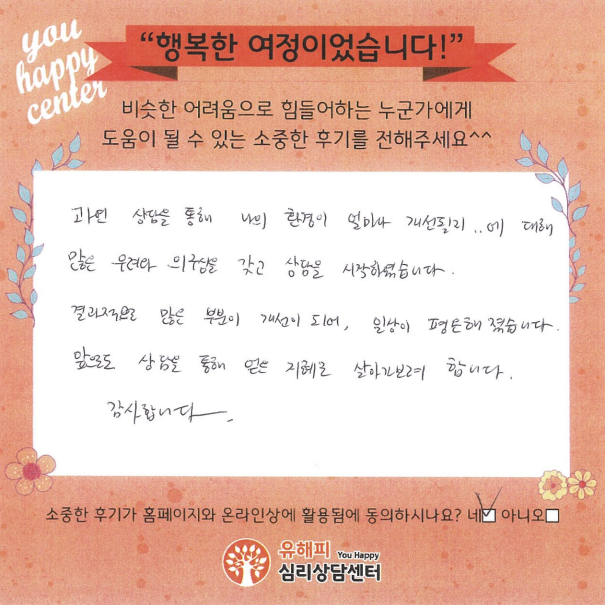 you
happy
center
“행복한 여정이었습니다!”
비슷한 어려움으로 힘들어하는 누군가에게
도움이 될 수 있는 소중한 후기를 전해주세요^^
과연 상담을 통해 나의 환경이 얼마나 개선될지..에 대해
많은 우려와 의구심을 갖고 상담을 시작하였습니다.
결과적으로 많은 부분이 개선이 되어, 일상이 평온해 졌습니다.
앞으로도 상담을 통해 얻은 지혜로 살아가보려 합니다.
감사합니다.
소중한 후기가 홈페이지와 온라인상에 활용됨에 동의하시나요? 네☑ 아니오☐
유해피 You Happy
심리상담센터